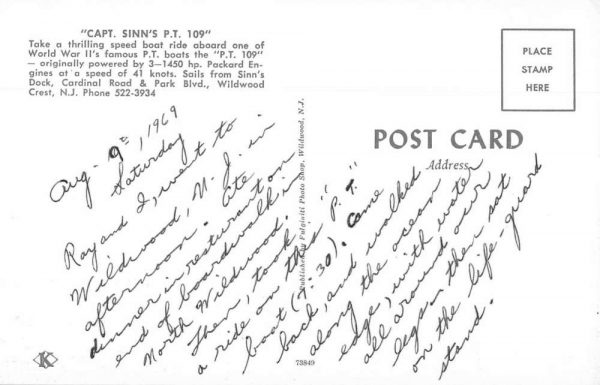 "CAPT. SINN'S P.T. 109"
Take a thrilling speed boat ride aboard one of
World War II's famous P.T. boats the "P.T. 109"
— originally powered by 3—1450 hp. Packard En-
gines at a speed of 41 knots. Sails from Sinn's
Dock, Cardinal Road & Park Blvd., Wildwood
Crest, N.J. Phone 522-3934
PLACE
STAMP
HERE
POST CARD
Address
Published by Fulginiti Photo Shop, Wildwood, N.J.
Aug. 9th, 1969
Saturday
Ray and I, went to
Wildwood, N.J. in
afternoon. Ate
dinner in resturant on
end of boardwalk in
North Wildwood.
Then, took
a ride on this "P.T."
boat (7:30). Came
back, and walked
along the ocean
edge, with water
all around our
legs, then sat
on the life-guard
stand.
K
73849